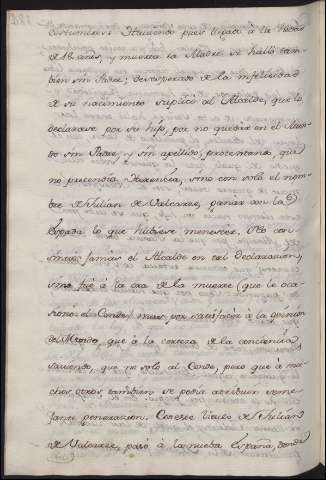 costumbres. Haviendo pues llegado à la hedad
de 18 años, y muerta la Madre se hallò tam-
bien sin Padre; desesperado de la infelicidad
de su nacimiento suplicò al Alcalde, que lo
declarase por su hijo, por no quedar en el Mun-
do sin Padre, y sin apellido, protestando, que
no pretendia Herencia, sino con solo el nom-
bre de Julian de Valcarcel, ganar con la
Espada lo que hubiese menester. No con-
sintiò jamas el Alcalde en tal Declaracion,
sino fuè à la ora de la muerte (que le oca-
sionò el Conde) mas por satisfacer à la opinion
del Mundo, que à la certeza de la conciencia,
saviendo, que no solo al Conde, pero que à mu-
chos otros tambien se podia atribuir seme-
jante generacion. Con este titulo de Julian
de Valcarcel, pasò à la nueba España, donde